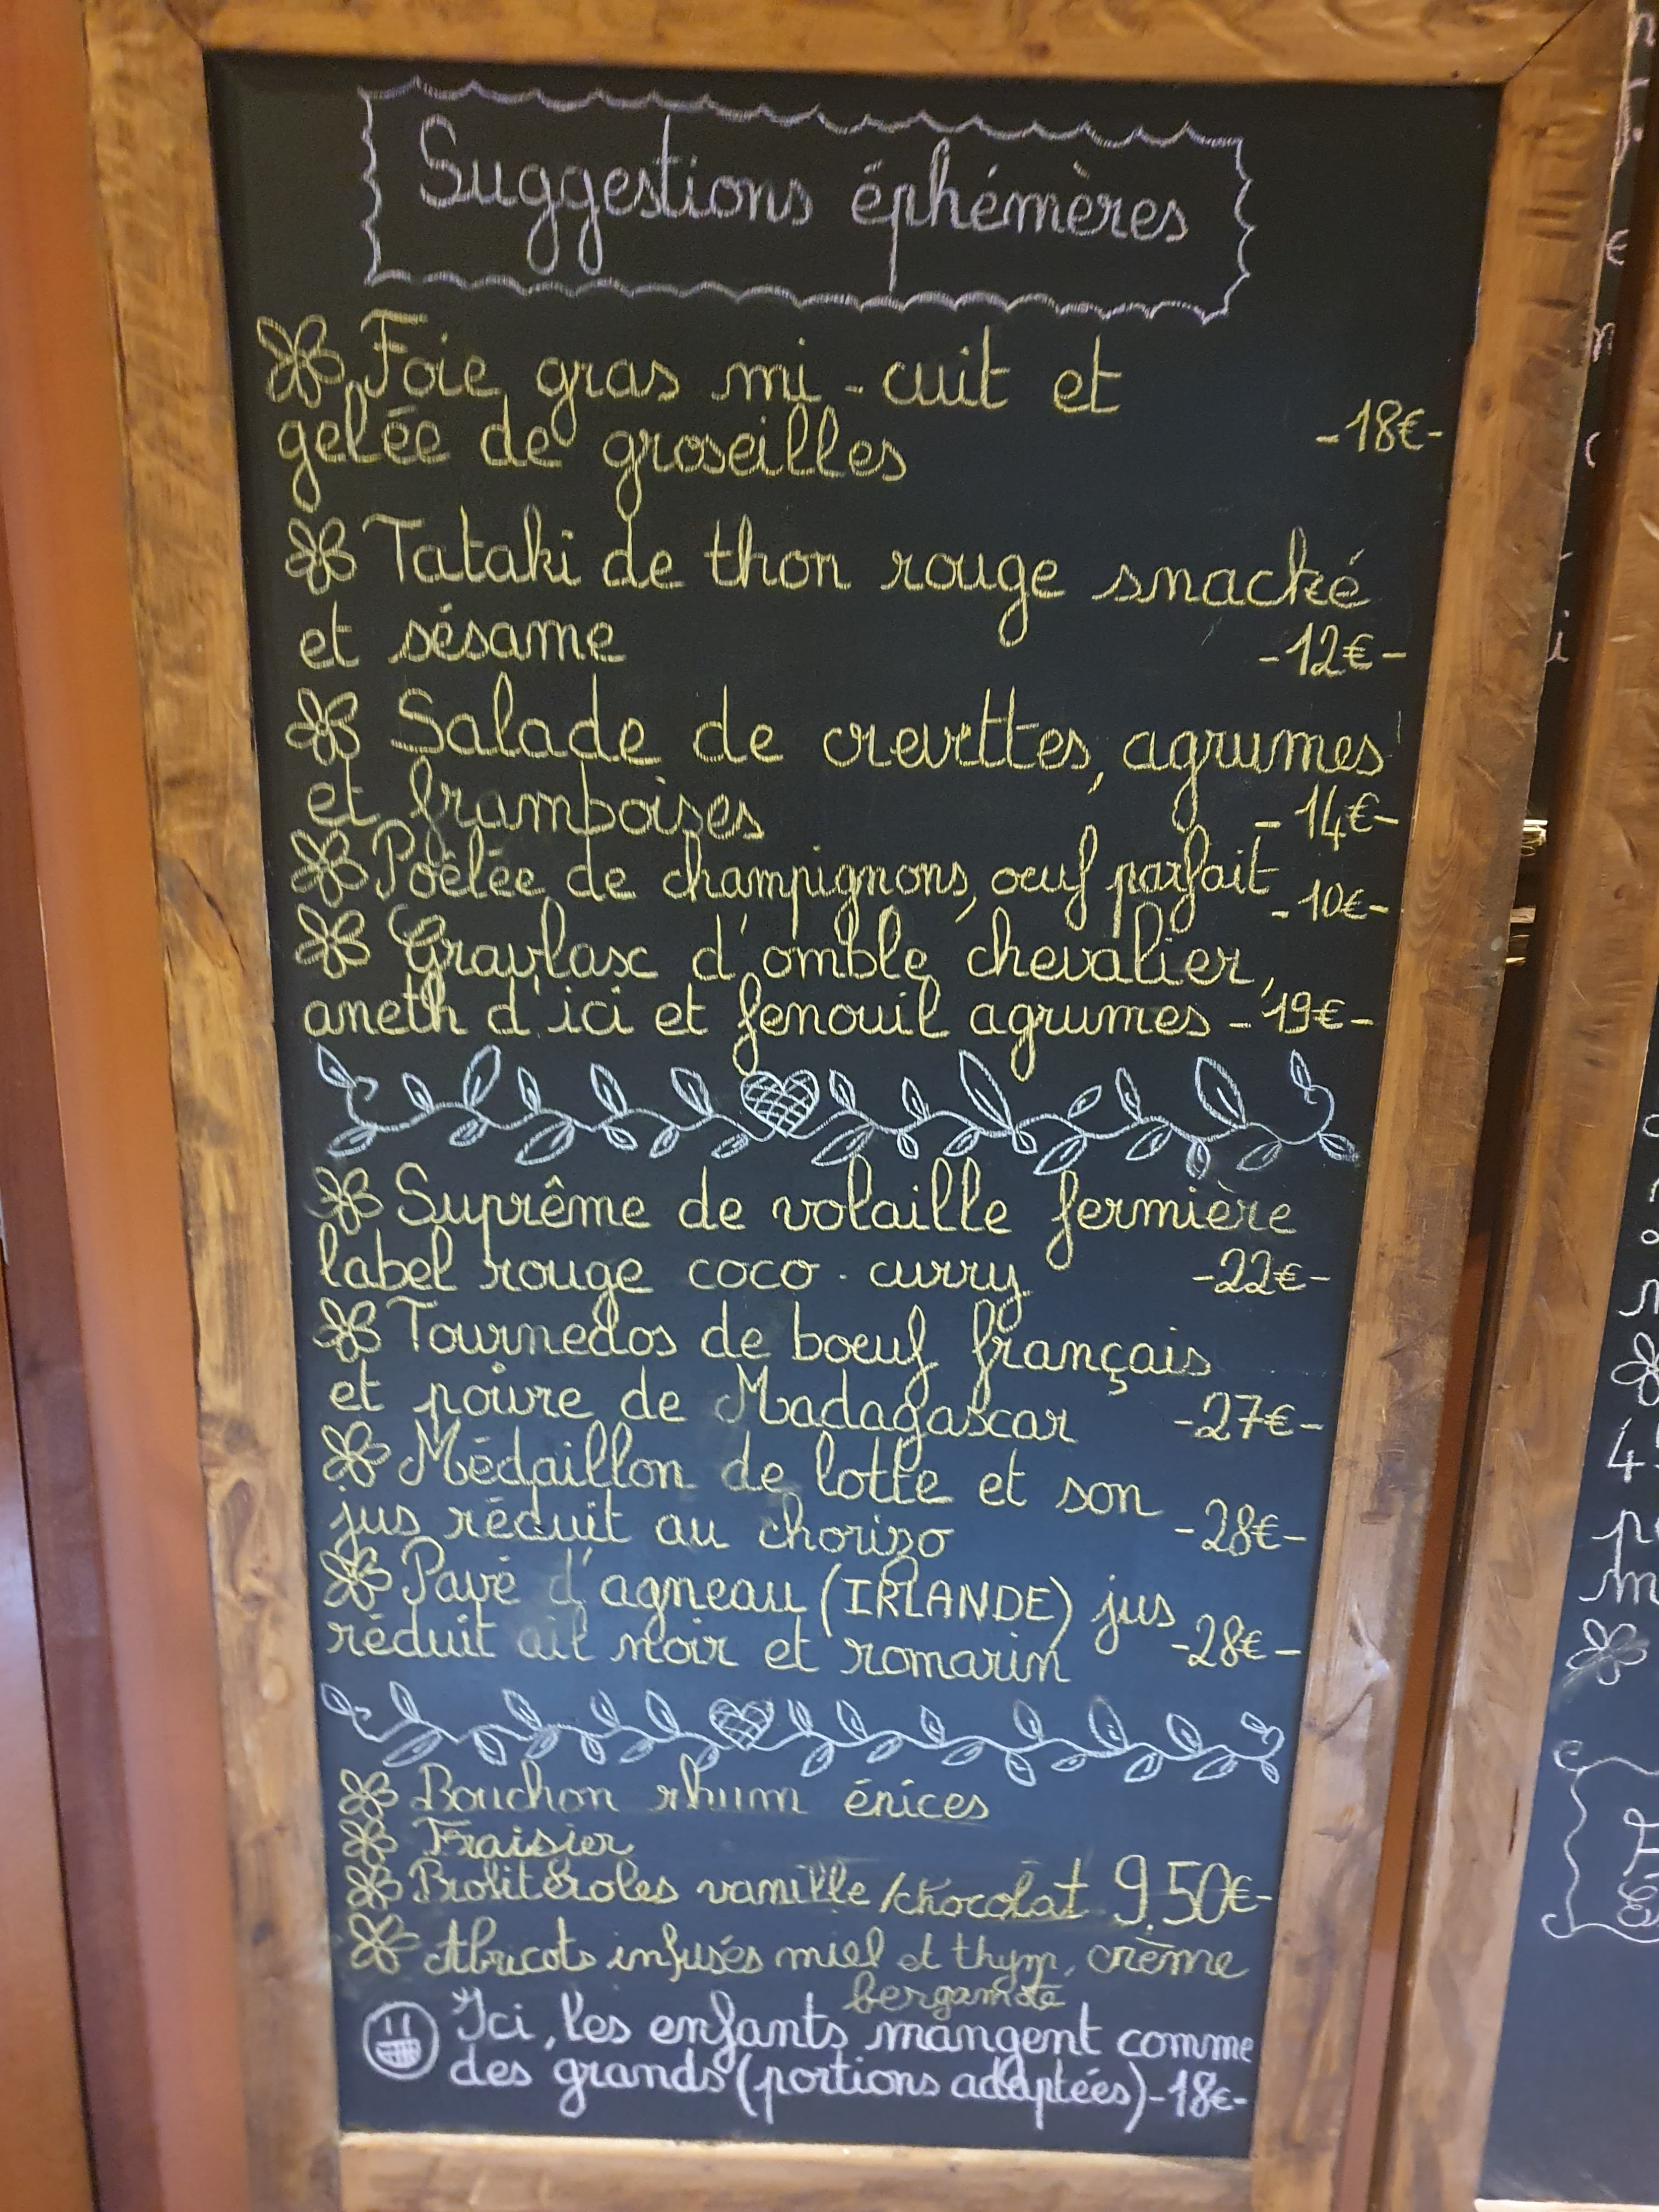 Suggestions éphémères
Foie gras mi-cuit et
gelée de groseilles -18€-
Tataki de thon rouge snacké
et sésame -12€-
Salade de crevettes, agrumes
et framboises -14€-
Poêlée de champignons, oeuf parfait -10€-
Gravlax d'omble chevalier,
aneth d'ici et fenouil agrumes -19€-
Suprême de volaille fermière
label rouge coco-curry -22€-
Tournedos de boeuf français
et poivre de Madagascar -27€-
Médaillon de lotte et son
jus réduit au chorizo -28€-
Pavé d'agneau (IRLANDE) jus
réduit ail noir et romarin -28€-
Bouchon rhum épices
Fraisier
vanille/chocolat 9.50€-
Abricots infusés miel et thym, crème
bergamote
Ici, les enfants mangent comme
des grands (portions adaptées) -18€-